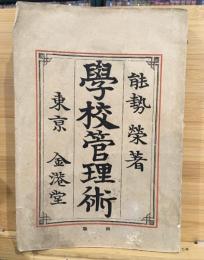 能勢榮著
學校管理術
東京 金港堂